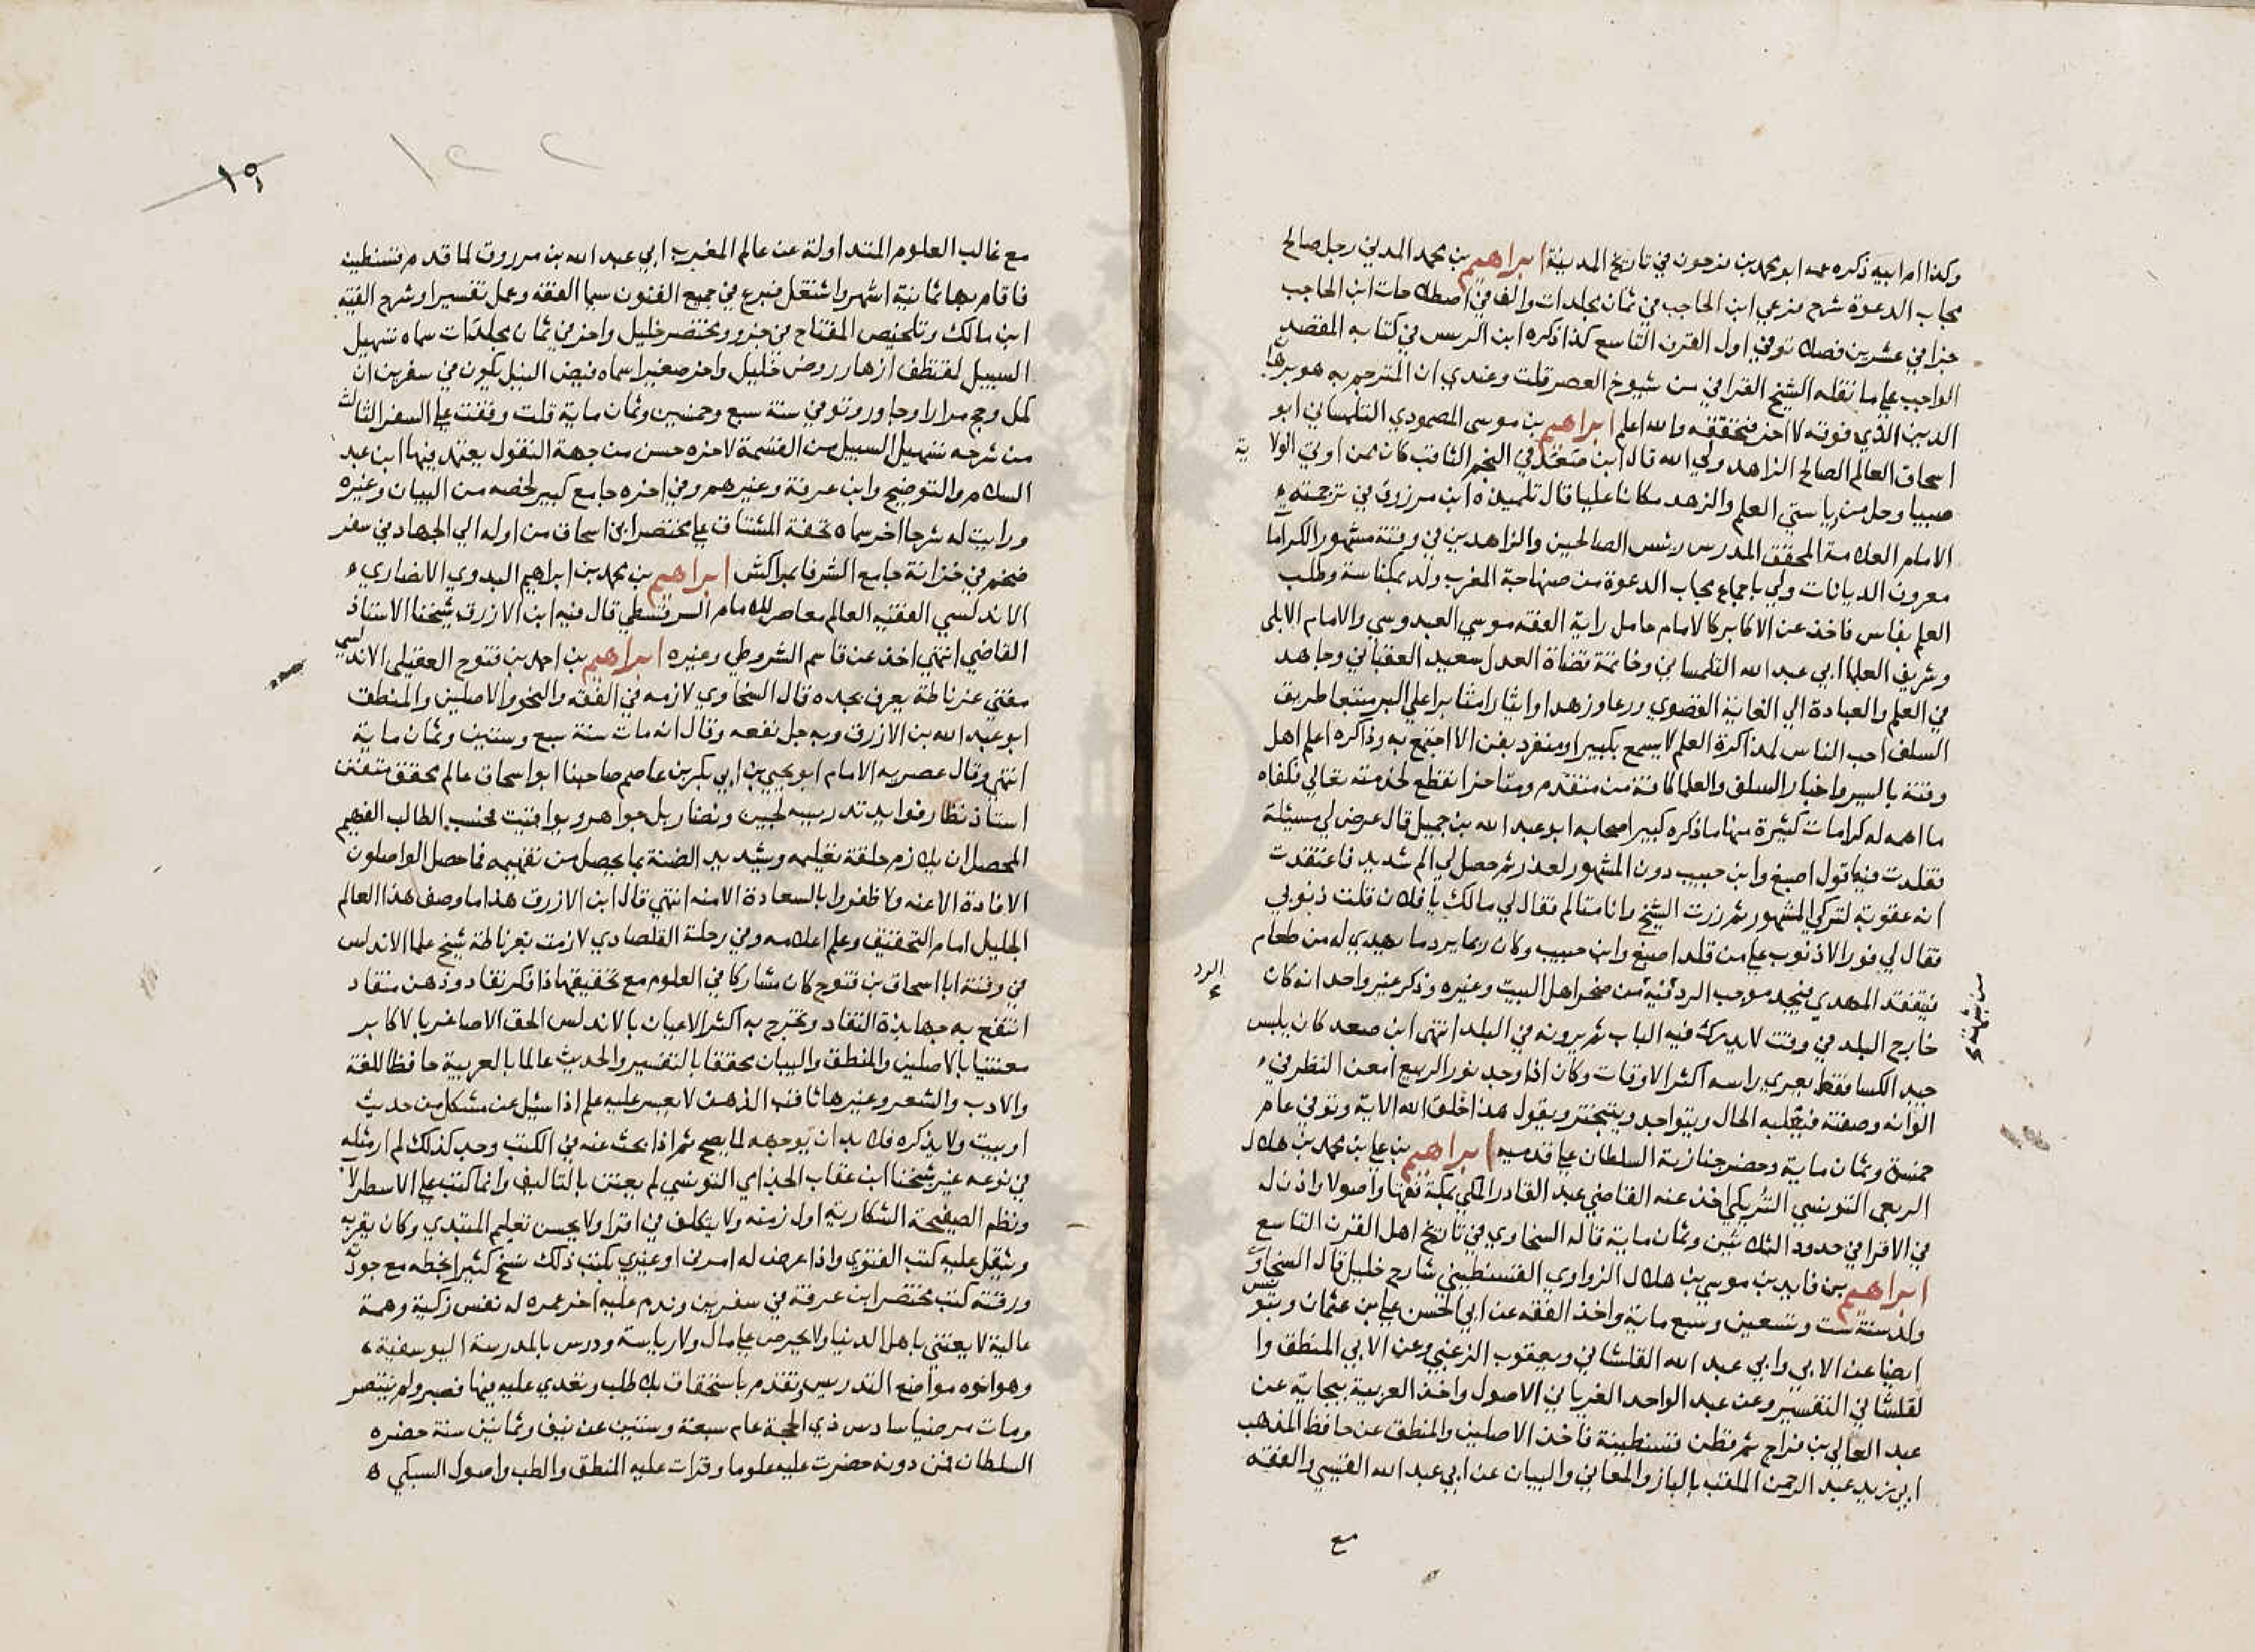 وكذا امر ابيه ذكره عمه ابو محمد بن فرحون في تاريخ المدينة ابراهيم بن محمد المدني رجل صالح
مجاب الدعوة شرح فرعي ابن الحاجب في ثمان مجلدات والف في اصطلاحات ابن الحاجب
جزا في عشرين فصلا توفي اول القرن التاسع كذا ذكره ابن في كتابه المقصد
الواجب علي ما نقله الشيخ القرافي من شيوخ العصر قلت وعندي ان المترجم به هو برهان
الدين الذي فوقه لا اخر فتحققه والله اعلم ابراهيم بن موسى المصمودي التلمساني ابو
اسحاق العالم الصالح الزاهد ولي الله قال ابن صعد في النجم الثاقب كان ممن اوتي الولاية
صبيا وحل من رياستي العلم والزهد مكانا عليا قال تلميذه ابن مرزوق في ترجمته
الامام العلامة المحقق المدرس رئيس الصالحين والزاهدين في وقته مشهور الكرامات
معروف الديانات ولي باجماع مجاب الدعوة من صنهاجة المغرب ولد بمكناسة وطلب
العلم بفاس فاخذ عن الاكابر كالامام حامل راية الفقه موسى العبدوسي والامام الابلي
وشريف العلما ابي عبد الله التلمساني وخاتمة قضاة العدل سعيد العقباني وجاهد
في العلم والعبادة الي الغاية القصوي ورعا وزهدا وايثارا مثابرا علي البر متبعا طريق
السلف احب الناس لمذاكرة العلم لا يسمع بكبير او منفرد بفن الا اجتمع به وذاكره اعلم اهل
وقته بالسير واخبار السلف والعلما كافة من متقدم ومتاخر انقطع لخدمته تعالي فكفاه
ما اهمه له كرامات كثيرة منها ما ذكره كبير اصحابه ابو عبد الله بن جميل قال عرض لي مسئلة
تقلدت فيها قول اصبغ وابن حبيب دون المشهور لعذر ثم حصل لي الم شديد فاعتقدت
انه عقوبة لتركي المشهور ثم زرت الشيخ وانا متالم فقال لي مالك يا فلان قلت ذنوبي
فقال لي فورا لا ذنوب علي من قلد اصبغ وابن حبيب وكان ربما يرد ما يهدي له من طعام
فيتفقد المهدي فيجد موجب الرد فيه من ضجر اهل البيت وغيره وذكر غير واحد انه كان
الرد
خارج البلد في وقت لا يدركه فيه الباب ثم يرونه في البلد انتهى ابن صعد كان يلبس
جيد الكسا فقط يعري راسه اكثر الاوقات وكان اذا وجد نور الربيع امعن النظر في
الوانه وصفته فيغلبه الحال ويتواجد ويتبختر ويقول هذا خلق الله الاية وتوفي عام
خمسة وثمان ماية وحضر جنازته السلطان علي قدميه ابراهيم بن علي بن محمد بن هلال
الربعي التونسي التريكي اخذ عنه القاضي عبد القادر المكي بمكة فقها واصولا واذن له
في الاقرا في حدود الثلاثين وثمان ماية قاله السخاوي في تاريخ اهل القرن التاسع
ابراهيم بن فايد بن موسى بن هلال الزواوي القسنطيني شارح خليل قال السخاوي
ولد سنة ست وتسعين وسبع ماية واخذ الفقه عن ابي الحسن علي بن عثمان وبتونس
ايضا عن الابي وابي عبد الله القلشاني ويعقوب الزغبي وعن الابي المنطق وا
لقلشاني التفسير وعن عبد الواحد الغرياني الاصول واخذ العربية ببجاية عن
عبد العالي بن فراج ثم قطن قسنطينة فاخذ الاصلين والمنطق عن حافظ المذهب
ابي زيد عبد الرحمن الملقب بالباز والمعاني والبيان عن ابي عبد الله القيسي والفقه
مع
١٢٢
١٥
مع غالب العلوم المتداولة عن عالم المغرب ابي عبد الله بن مرزوق لما قدم قسنطينة
فاقام بها ثمانية اشهر واشتغل فبرع في جميع الفنون سيما الفقه وعمل تفسيرا وشرح الفية
ابن مالك وتلخيص المفتاح في جزو ومختصر خليل واخر في ثمان مجلدات سماه تسهيل
السبيل لمقتطف ازهار روض خليل واخر صغيرا سماه فيض النيل يكون في سفرين ان
كمل وحج مرارا وجاور وتوفي سنة سبع وخمسين وثمان ماية قلت وقفت علي السفر الثالث
من شرحه تسهيل السبيل من القسمة لاخره حسن من جهة النقول يعتمد فيها ابن عبد
السلام والتوضيح وابن عرفة وغيرهم وفي اخره جامع كبير لخصه من البيان وغيره
ورايت له شرحا اخر سماه تحفة المشتاق علي مختصر ابن اسحاق من اوله الي الجهاد في سفر
ضخم في خزانة جامع الشرفا بمراكش ابراهيم بن محمد بن ابراهيم البدوي الانصاري
الاندلسي الفقيه العالم معاصر للامام السرقسطي قال فيه ابن الازرق شيخنا الاستاذ
القاضي انتهي اخذ عن قاسم الشروطي وغيره ابراهيم بن احمد بن فتوح العقيلي الاندلسي
مفتي غرناطة يعرف بجده قال السخاوي لازمه في الفقه والنحو والاصلين والمنطق
ابو عبد الله بن الازرق وبه جل نفعه وقال انه مات سنة سبع وستين وثمان ماية
انتهي وقال عصريه الامام ابو يحيى بن ابي بكر بن عاصم صاحبنا ابو اسحاق عالم محقق متفنن
استاذ نظار فوايد تدريسه لجين ونضار بل جواهر ويواقيت فحسب الطالب الفهيم
المحصل ان يلازم حلقة تعليمه ويشد يد الضنة بما يحصل من تفهيمه فما حصل الواصلون
الافادة الا عنه ولا ظفروا بالسعادة الا منه انتهي قال ابن الازرق هذا ما وصف هذا العالم
الجليل امام التحقيق وعلم اعلامه وفي رحلة القلصادي لازمت بغرناطة شيخ علما الاندلس
في وقته ابا اسحاق بن فتوح كان مشاركا في العلوم مع تحقيقها ذا فكر نقاد وذهن منقاد
انتفع به جهابذة النقاد وتخرج به اكثر الاعيان بالاندلس الحق الاصاغر بالاكابر
معتنيا بالاصلين والمنطق والبيان محققا بالتفسير والحديث عالما بالعربية حافظا للغة
والادب والشعر وغيرها ثاقب الذهن لا يعسر عليه علم اذا سئل عن مشكل من حديث
او بيت ولا يذكره فلا بد ان يوجهه لما يصح ثم اذا بحث عنه في الكتب وجد كذلك لم ار مثله
في نوعه غير شيخنا ابن عقاب الجذامي التونسي لم يعتن بالتاليف وانما كتب علي الاسطرلاب
ونظم الصفيحة الشكارية اول زمنه ولا يتكلف في اقرا ولا يحسن تعليم المبتدي وكان يقريه
ويثقل عليه كتب الفتوي واذا عرض له امرني او غيري بكتب ذلك نسخ كثيرا بخطه مع جودته
ورقته كتب مختصر ابن عرفة في سفرين وندم عليه اخر عمره له نفس زكية وهمة
عالية لا يعتني باهل الدنيا ولا يحرص علي مال ولا رياسة ودرس بالمدرسة اليوسفية
وهو انوه مواضع التدريس وتقدم باستحقاق بلا طلب وتعدي عليه فيها فصبر ولم ينتصر
ومات مرضيا سادس ذي الحجة عام سبعة وستين عن نيف وثمانين سنة حضره
السلطان فمن دونه حضرت عليه علوما وقرات عليه المنطق والطب واصول السبكي ه